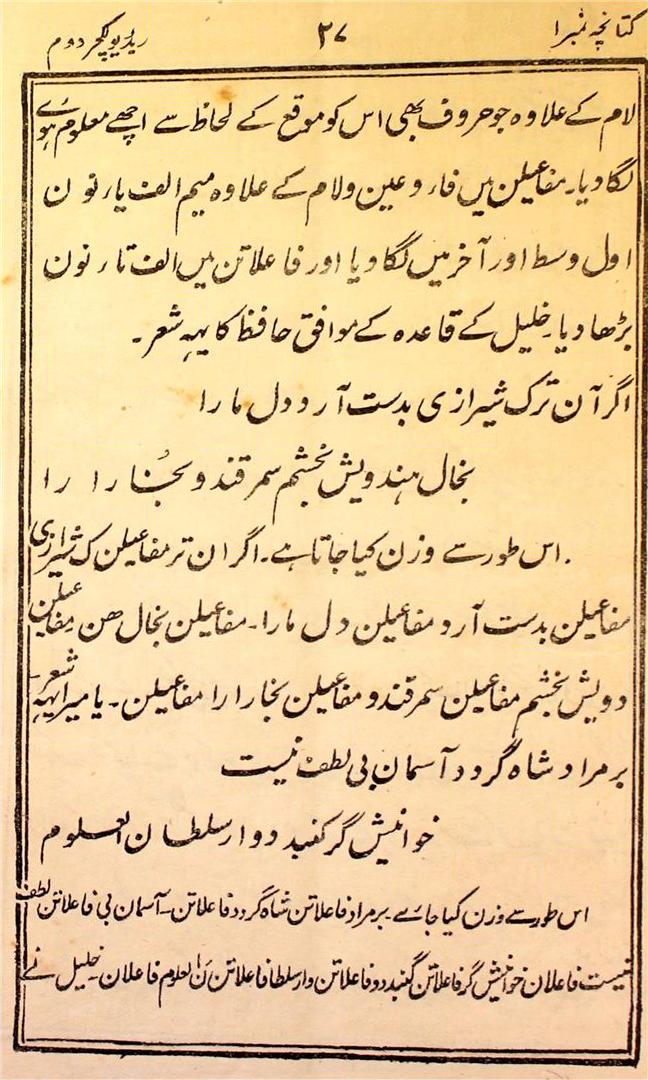 کتابچہ نمبر ۱ ۳۷ ریڈیو لکچر دوم
لام کے علاوہ جو حروف بھی اس کو موقع کے لحاظ سے اچھے معلوم ہوئے
لگا دیا۔ مفاعیلن میں فاء و عین و لام کے علاوہ میم الف یاء نون
اول وسط اور آخر میں لگا دیا اور فاعلاتن میں الف تاء نون
بڑھا دیا۔ خلیل کے قاعدہ کے موافق حافظ کا یہہ شعر۔
اگر آن ترک شیرازی بدست آرد دل مارا
بخال ہندویش بخشم سمرقند و بخارا را
اس طور سے وزن کیا جاتا ہے۔ اگر ان تر مفاعیلن ک شیرازی
مفاعیلن بدست آرد مفاعیلن دل مارا۔ مفاعیلن بخال ھن مفاعیلن
دویش بخشم مفاعیلن سمرقند و مفاعیلن بخارا را مفاعیلن۔ یا میرا یہہ شعر۔
بر مراد شاہ گردد آسمان بی لطف نیست
خوانیش گر گنبد دوار سلطان العلوم
اس طور سے وزن کیا جائے۔ بر مراد فاعلاتن شاہ گردد فاعلاتن۔ آسمان بی فاعلاتن لطف
نیست فاعلان خوانیش گر فاعلاتن گنبد دو فاعلاتن وار سلطا فاعلاتن نَ العلوم فاعلان۔ خلیل نے